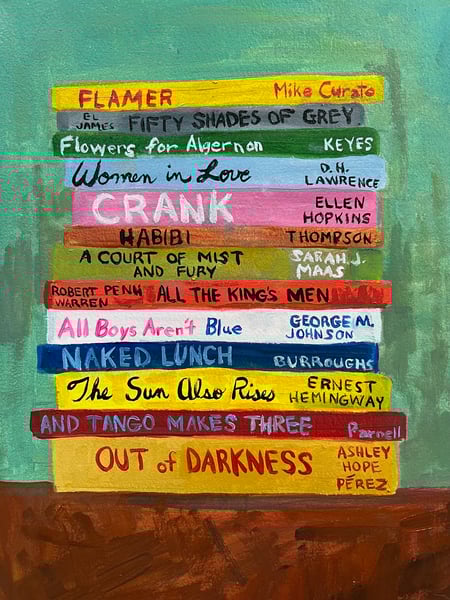 FLAMER Mike Curato
EL JAMES FIFTY SHADES OF GREY.
Flowers for Algernon KEYES
Women in Love D.H. LAWRENCE
CRANK ELLEN HOPKINS
HABIBI THOMPSON
A COURT OF MIST AND FURY SARAH J. MAAS
ROBERT PENN WARREN ALL THE KING'S MEN
All Boys Aren't Blue GEORGE M. JOHNSON
NAKED LUNCH BURROUGHS
The Sun Also Rises ERNEST HEMINGWAY
AND TANGO MAKES THREE Parnell
OUT of DARKNESS ASHLEY HOPE PÉREZ